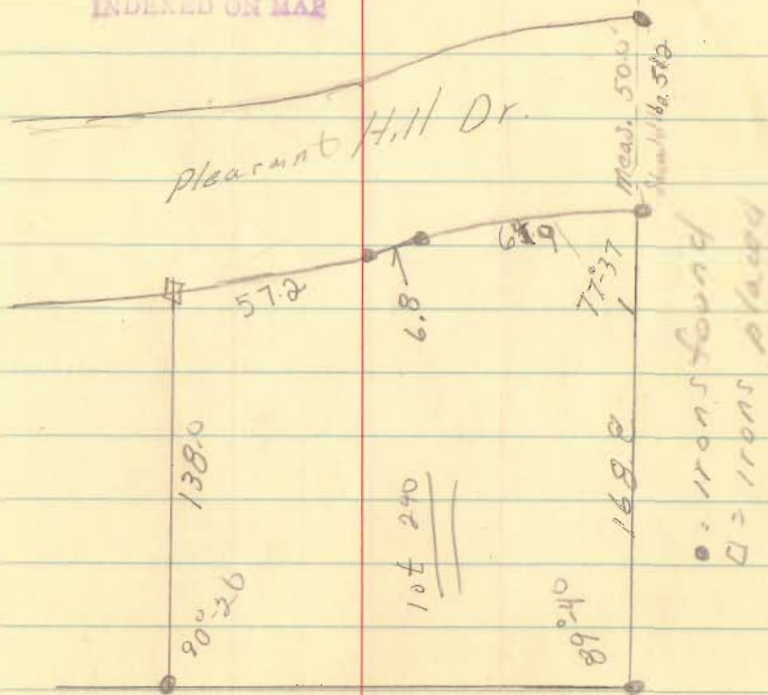 INDEXED ON MAP
Pleasant Hill Dr.
Meas. 50.0'
be 51.2
57.2
6.8
77°-37
138.0
168.8
lot 240
90°-20
89°-40
● = irons found
□ = irons placed